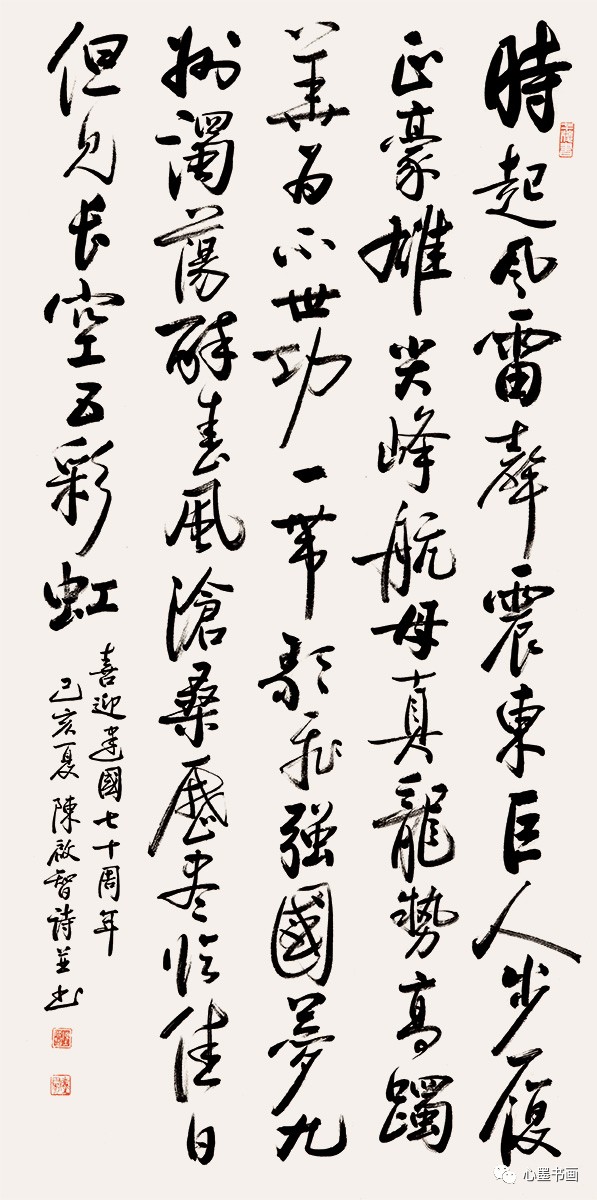 時起风雷聲震東巨人步履
正豪雄尖峰航母真龍勢高躅
華为不世功一帶歌飛強國夢九
州澹蕩醉春風滄桑歷盡臨佳日
但見長空五彩虹
喜迎建國七十周年
己亥夏陳啟智詩並书
心墨书画